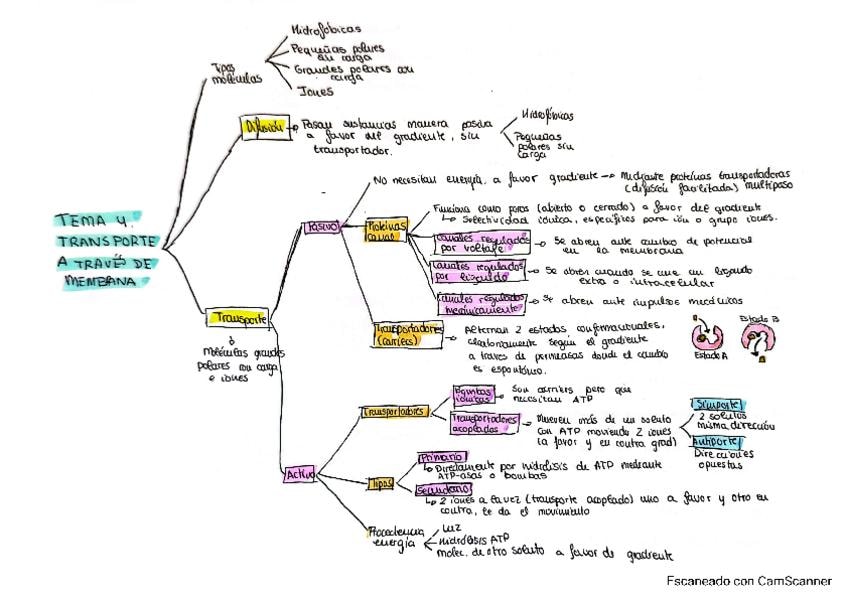 TEMA 4.
TRANSPORTE
A TRAVÉS DE
MEMBRANA
Tipos
moléculas
Hidrofóbicas
Pequeñas polares
sin carga
Grandes polares con
carga
Iones
Difusión
Pasan sustancias manera pasiva
a favor del gradiente, sin
transportador.
Hidrofóbicas
Pequeñas
polares sin
carga
Transporte
Moléculas grandes
polares con carga
e iones
Pasivo
No necesitan energía, a favor gradiente → Mediante proteínas transportadoras
(difusión facilitada) multipaso
Proteínas
canal
Funciona como poros (abierto o cerrado) a favor del gradiente
Selectividad iónica, específicos para ión o grupo iones.
Canales regulados
por voltaje
Se abren ante cambio de potencial
en la membrana
Canales regulados
por ligando
Se abren cuando se une un ligando
extra o intracelular
Canales regulados
mecánicamente
Se abren ante impulsos mecánicos
Transportadores
(carriers)
Alternan 2 estados conformacionales,
aleatoriamente según el gradiente
a través de permeasas donde el cambio
es espontáneo.
Estado A
Estado B
Activo
Transportadores
Bombas
iónicas
Son carriers pero que
necesitan ATP
Transportadores
acoplados
Mueven más de un soluto
con ATP moviendo 2 iones
(a favor y en contra grad)
Simporte
2 solutos
misma dirección
Antiporte
Direcciones
opuestas
Tipos
Primario
Directamente por hidrólisis de ATP mediante
ATP-asas o bombas
Secundario
2 iones a la vez (transporte acoplado) uno a favor y otro en
contra, le da el movimiento
Procedencia
energía
Luz
Hidrólisis ATP
molec. de otro soluto a favor de gradiente
Escaneado con CamScanner